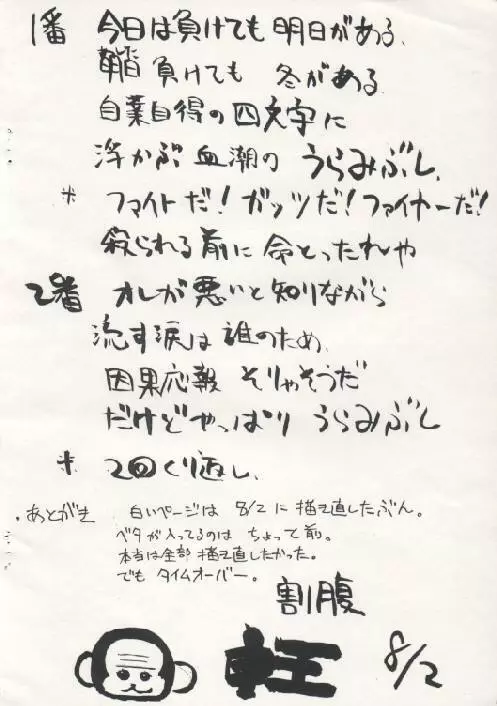 1番 今日は負けても 明日がある、
踏負けても 冬がある
自業自得の四文字に
浮かぶ 血潮の うらみぶし、
* ファイトだ!ガッツだ!ファイヤーだ!
殺られる前に 命とったれや
2番 オレが悪いと知りながら
流す涙は 誰のため、
因果応報 そりゃそうだ
だけど やっぱり うらみぶし
* 2回くり返し、
・あとがき 白いページは 8/2 に 描き直したぶん。
ベタが入ってるのは ちょって前。
本当は全部 描き直したかった。
でも タイムオーバー。
割腹
8/2